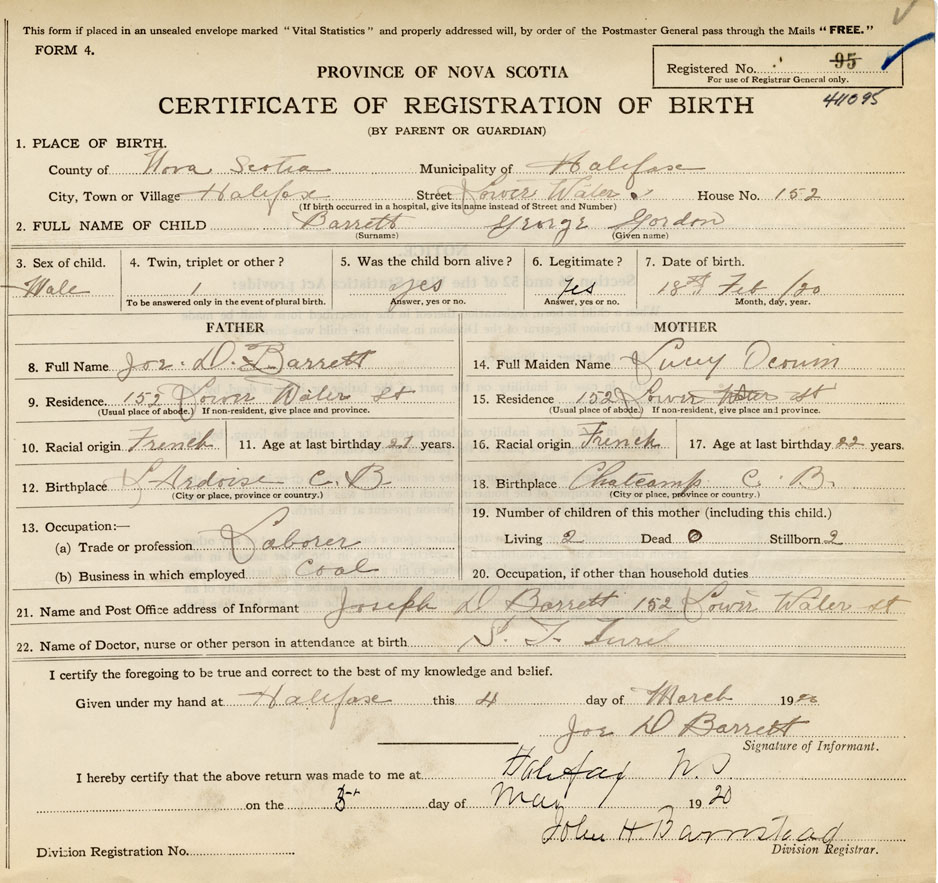 This form if placed in an unsealed envelope marked "Vital Statistics" and properly addressed will, by order of the Postmaster General pass through the Mails "FREE."
FORM 4.
PROVINCE OF NOVA SCOTIA
Registered No. 95
For use of Registrar General only.
CERTIFICATE OF REGISTRATION OF BIRTH
(BY PARENT OR GUARDIAN)
1. PLACE OF BIRTH.
County of Nova Scotia Municipality of Halifax
City, Town or Village Halifax Street Lower Water House No. 152
(If birth occurred in a hospital, give its name instead of Street and Number)
2. FULL NAME OF CHILD Barrett George Gordon
(Surname) (Given name)
3. Sex of child. 4. Twin, triplet or other? 5. Was the child born alive? 6. Legitimate? 7. Date of birth.
Male 1 yes yes 18th Feb /20
To be answered only in the event of plural birth. Answer, yes or no. Answer, yes or no. Month, day, year.
FATHER MOTHER
8. Full Name Joe. D. Barrett 14. Full Maiden Name Lucy
9. Residence. 152 Lower Water St 15. Residence 152 Lower Water st
(Usual place of abode.) If non-resident, give place and province. (Usual place of abode.) If non-resident, give place and province.
10. Racial origin French 11. Age at last birthday 27 years. 16. Racial origin French 17. Age at last birthday 22 years.
12. Birthplace L'Ardoise C. B 18. Birthplace Chatcamp C. B.
(City or place, province or country.) (City or place, province or country.)
13. Occupation:— 19. Number of children of this mother (including this child.)
(a) Trade or profession Laborer Living 2 Dead 0 Stillborn 2
(b) Business in which employed coal 20. Occupation, if other than household duties
21. Name and Post Office address of Informant Joseph D Barrett 152 Lower Water st
22. Name of Doctor, nurse or other person in attendance at birth
I certify the foregoing to be true and correct to the best of my knowledge and belief.
Given under my hand at Halifax this 4 day of March 1920
Joe D Barrett
Signature of Informant.
I hereby certify that the above return was made to me at Halifax N.S
on the day of May 1920
John H Barnstead
Division Registration No. Division Registrar.